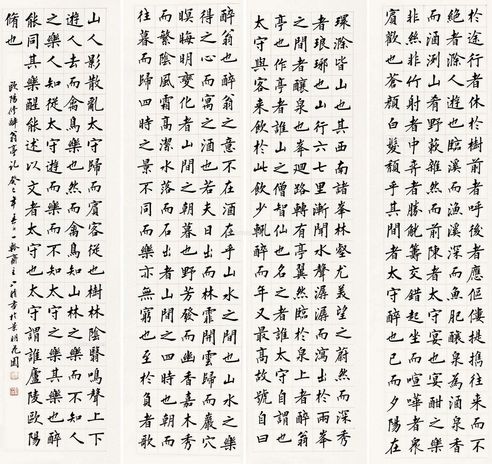 環滁皆山也其西南諸峯林壑尤美望之蔚然而深秀
者琅琊也山行六七里漸聞水聲潺潺而瀉出於兩峯
之間者釀泉也峯迴路轉有亭翼然臨於泉上者醉翁
亭也作亭者誰山之僧智仙也名之者誰太守自謂也
太守與客來飲於此飲少輒醉而年又最高故號自曰
醉翁也醉翁之意不在酒在乎山水之間也山水之樂
得之心而寓之酒也若夫日出而林霏開雲歸而巖穴
暝晦明變化者山間之朝暮也野芳發而幽香佳木秀
而繁陰風霜高潔水落而石出者山間之四時也朝而
往暮而歸四時之景不同而樂亦無窮也至於負者歌
於途行者休於樹前者呼後者應傴僂提攜往來而不
絕者滁人遊也臨溪而漁溪深而魚肥釀泉為酒泉香
而酒洌山肴野蔌雜然而前陳者太守宴也宴酣之樂
非絲非竹射者中弈者勝觥籌交錯起坐而諠嘩者衆
賓歡也蒼顏白髮頹乎其間者太守醉也已而夕陽在
山人影散亂太守歸而賓客從也樹林陰翳鳴聲上下
遊人去而禽鳥樂也然而禽鳥知山林之樂而不知人
之樂人知從太守遊而樂而不知太守之樂其樂也醉
能同其樂醒能述以文者太守也太守謂誰廬陵歐陽
脩也
歐陽修醉翁亭記